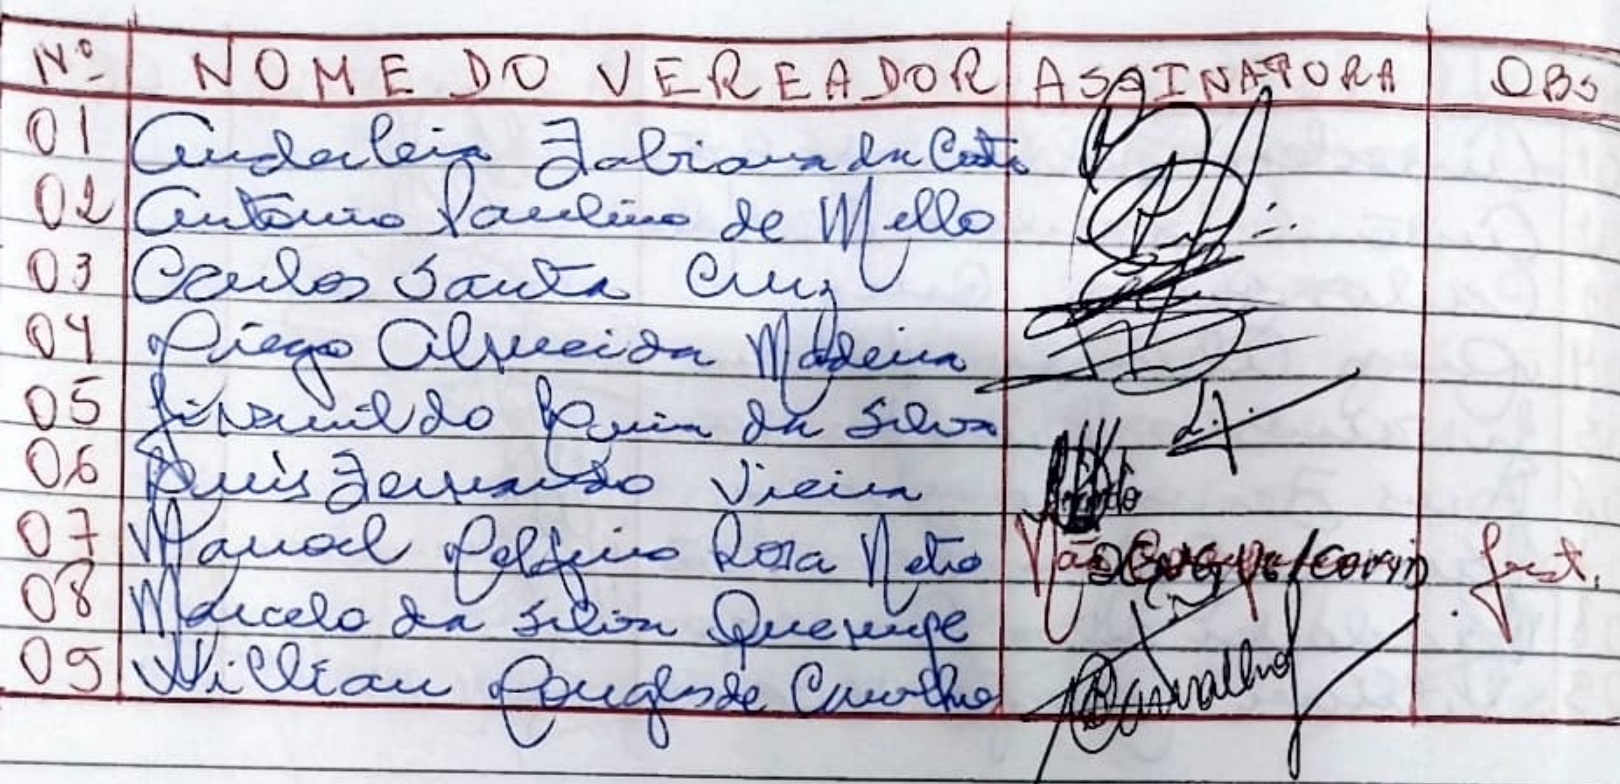 Nº NOME DO VEREADOR ASSINATURA OBS
01 Anderleia Fabiana da Costa
02 Antônio Paulino de Mello
03 Carlos Santa Cruz
04 Diego Almeida Madeira
05 da Silva
06 Luís Fernando Vieira
07 Manoel Rosa Neto Just.
08 Marcelo da Silva
09 Willian Douglas de Carvalho Carvalho